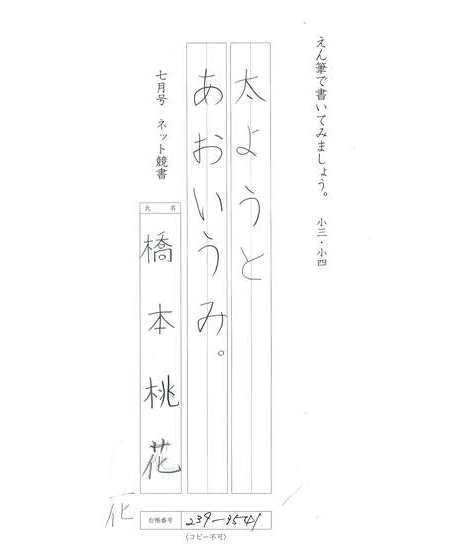 えん筆で書いてみましょう。 小三・小四
太ようと
あおいうみ。
七月号 ネット競書
氏名
橋本桃花
花
台帳番号 239-9541
(コピー不可)